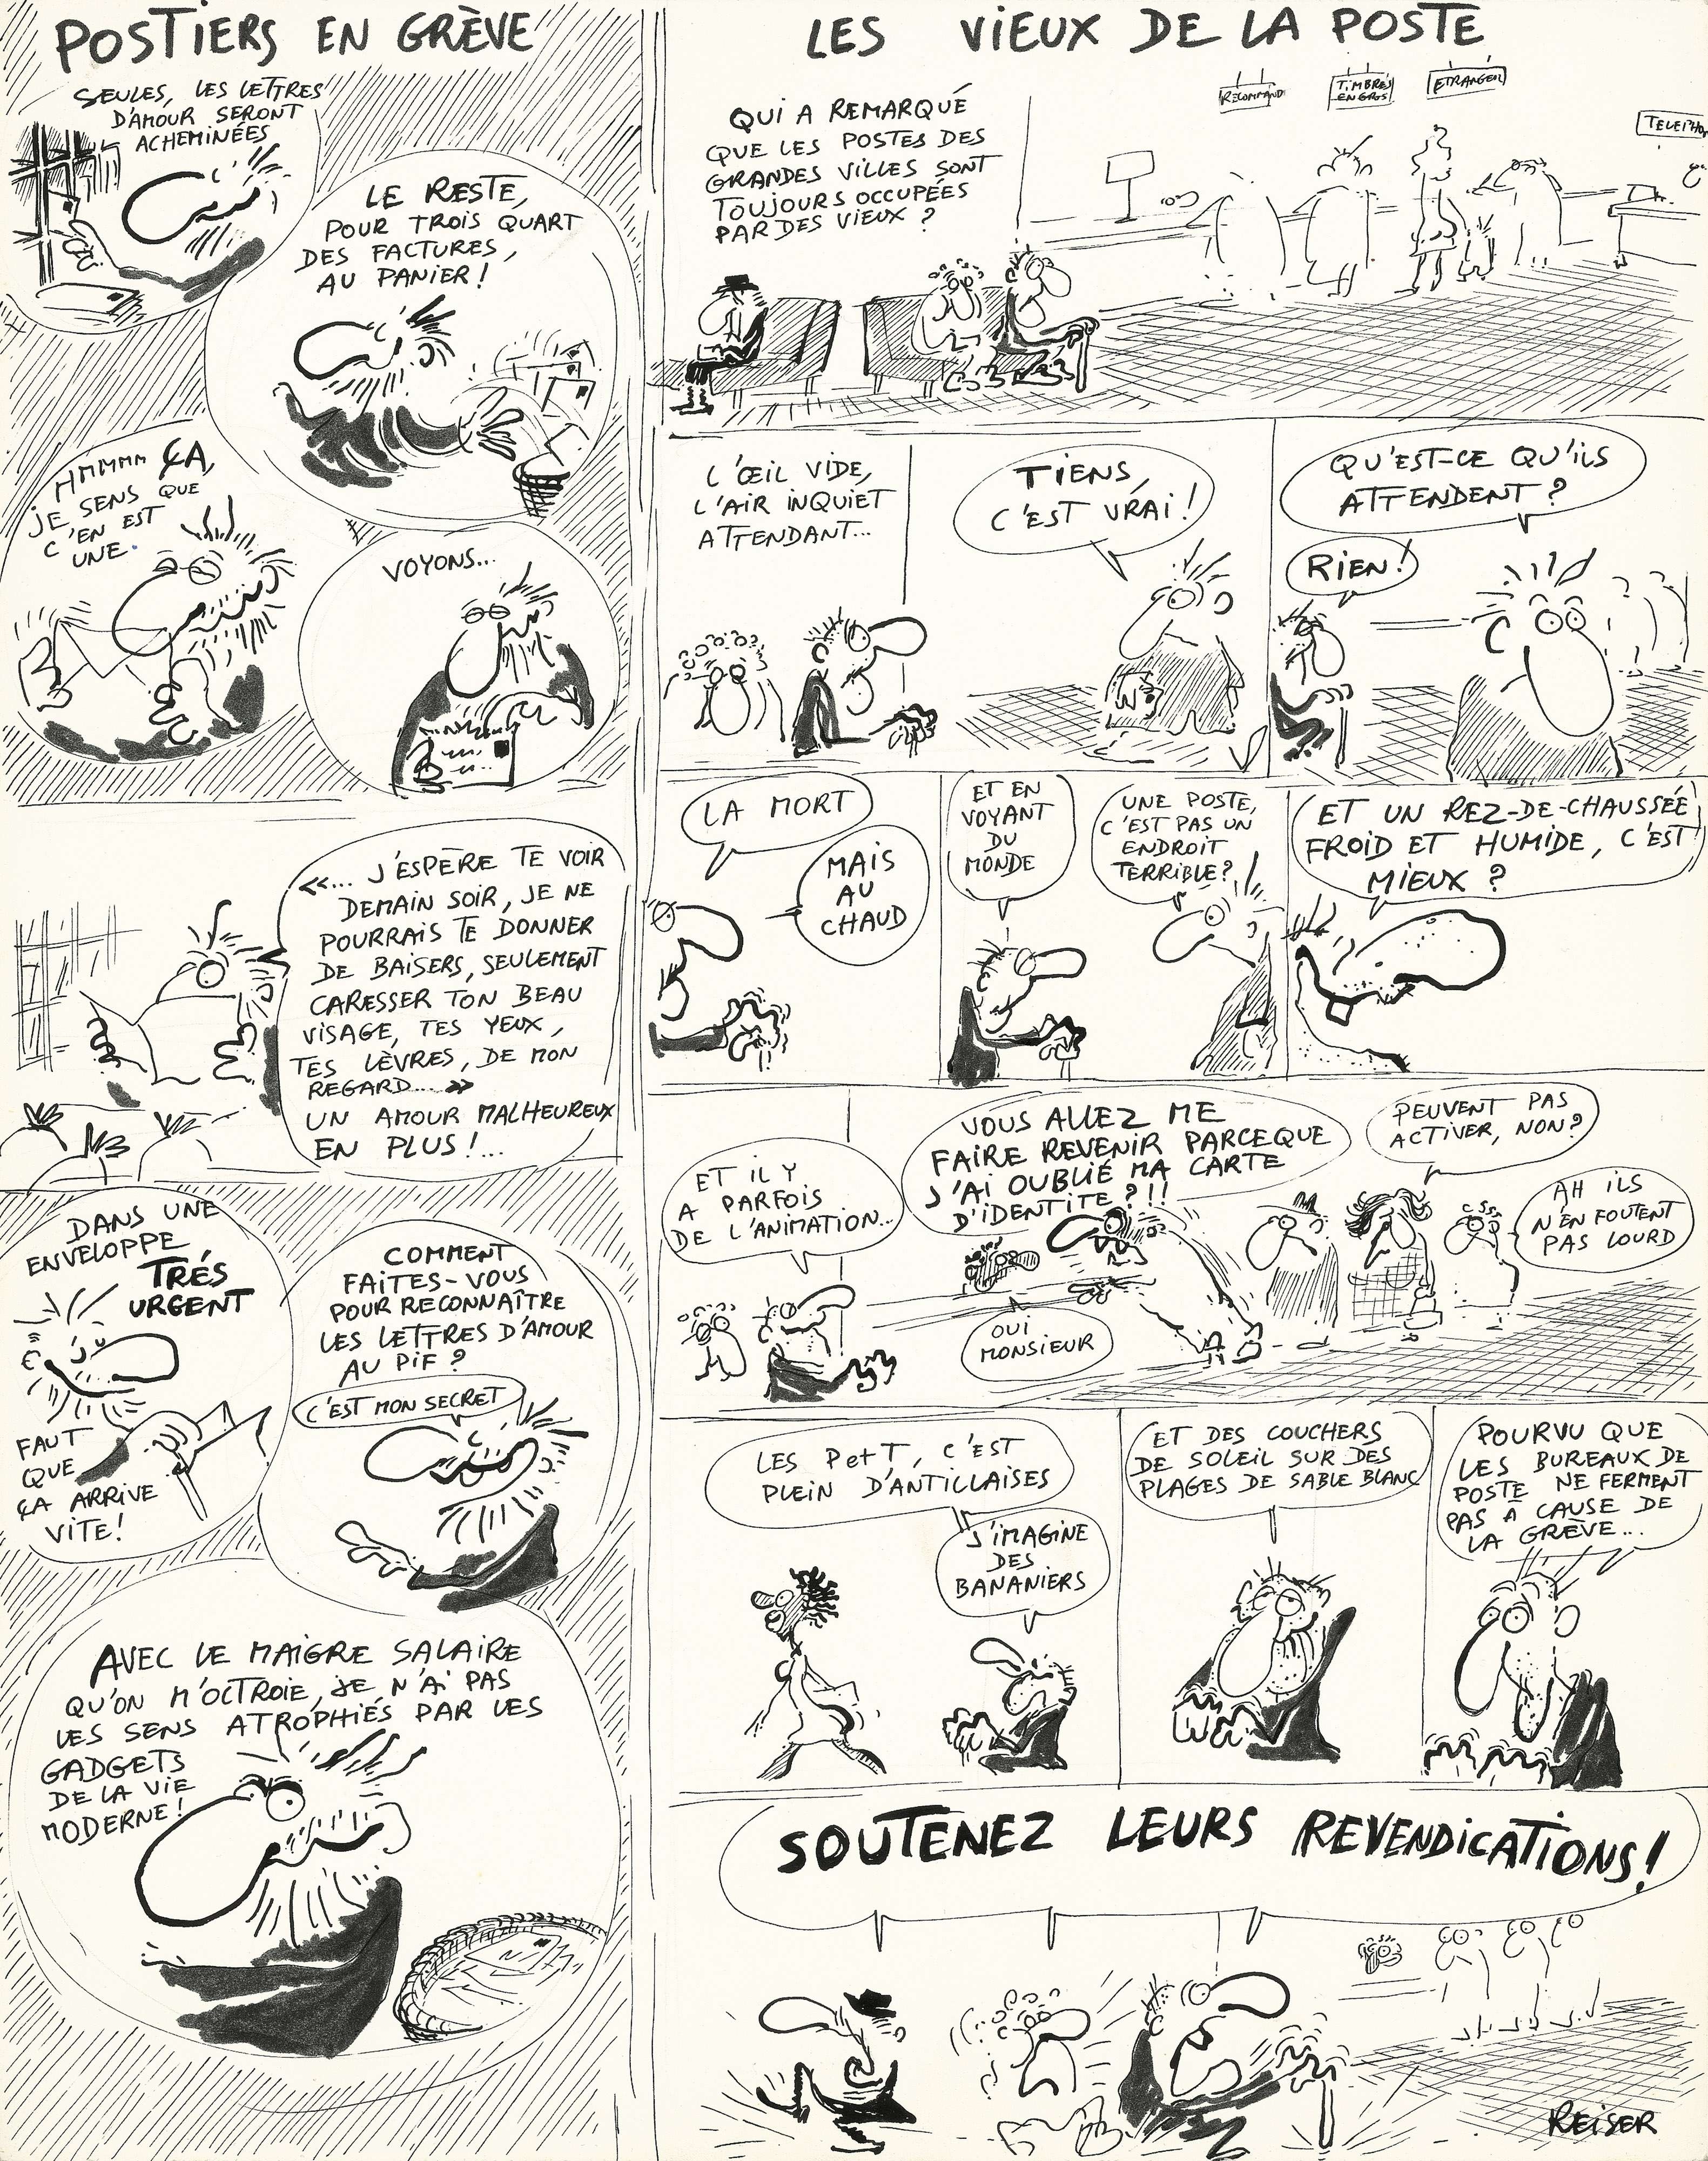 POSTIERS EN GRÈVE
SEULES, LES LETTRES
D'AMOUR SERONT
ACHEMINÉES
LE RESTE,
POUR TROIS QUART
DES FACTURES,
AU PANIER !
HMMMM ÇA,
JE SENS QUE
C'EN EST
UNE.
VOYONS...
«... J'ESPÈRE TE VOIR
DEMAIN SOIR, JE NE
POURRAIS TE DONNER
DE BAISERS, SEULEMENT
CARESSER TON BEAU
VISAGE, TES YEUX,
TES LÈVRES, DE MON
REGARD... »
UN AMOUR MALHEUREUX
EN PLUS !...
DANS UNE
ENVELOPPE
TRÉS
URGENT
FAUT
QUE
ÇA ARRIVE
VITE !
COMMENT
FAITES-VOUS
POUR RECONNAÎTRE
LES LETTRES D'AMOUR
AU PIF ?
C'EST MON SECRET
AVEC LE MAIGRE SALAIRE
QU'ON M'OCTROIE, JE N'AI PAS
LES SENS ATROPHIÉS PAR LES
GADGETS
DE LA VIE
MODERNE !
LES VIEUX DE LA POSTE
RECOMMAND
TIMBRES
EN GROS
ETRANGER
TELEPHO
QUI A REMARQUÉ
QUE LES POSTES DES
GRANDES VILLES SONT
TOUJOURS OCCUPÉES
PAR DES VIEUX ?
L'ŒIL VIDE,
L'AIR INQUIET
ATTENDANT...
TIENS,
C'EST VRAI !
QU'EST-CE QU'ILS
ATTENDENT ?
RIEN !
LA MORT
MAIS
AU
CHAUD
ET EN
VOYANT
DU
MONDE
UNE POSTE,
C'EST PAS UN
ENDROIT
TERRIBLE ?
ET UN REZ-DE-CHAUSSÉE
FROID ET HUMIDE, C'EST
MIEUX ?
ET IL Y
A PARFOIS
DE L'ANIMATION...
VOUS ALLEZ ME
FAIRE REVENIR PARCEQUE
J'AI OUBLIÉ MA CARTE
D'IDENTITE ? !!
OUI
MONSIEUR
PEUVENT PAS
ACTIVER, NON ?
AH ILS
N'EN FOUTENT
PAS LOURD
LES P et T, C'EST
PLEIN D'ANTILLAISES
J'IMAGINE
DES
BANANIERS
ET DES COUCHERS
DE SOLEIL SUR DES
PLAGES DE SABLE BLANC
POURVU QUE
LES BUREAUX DE
POSTE NE FERMENT
PAS À CAUSE DE
LA GRÈVE...
SOUTENEZ LEURS REVENDICATIONS !
REISER